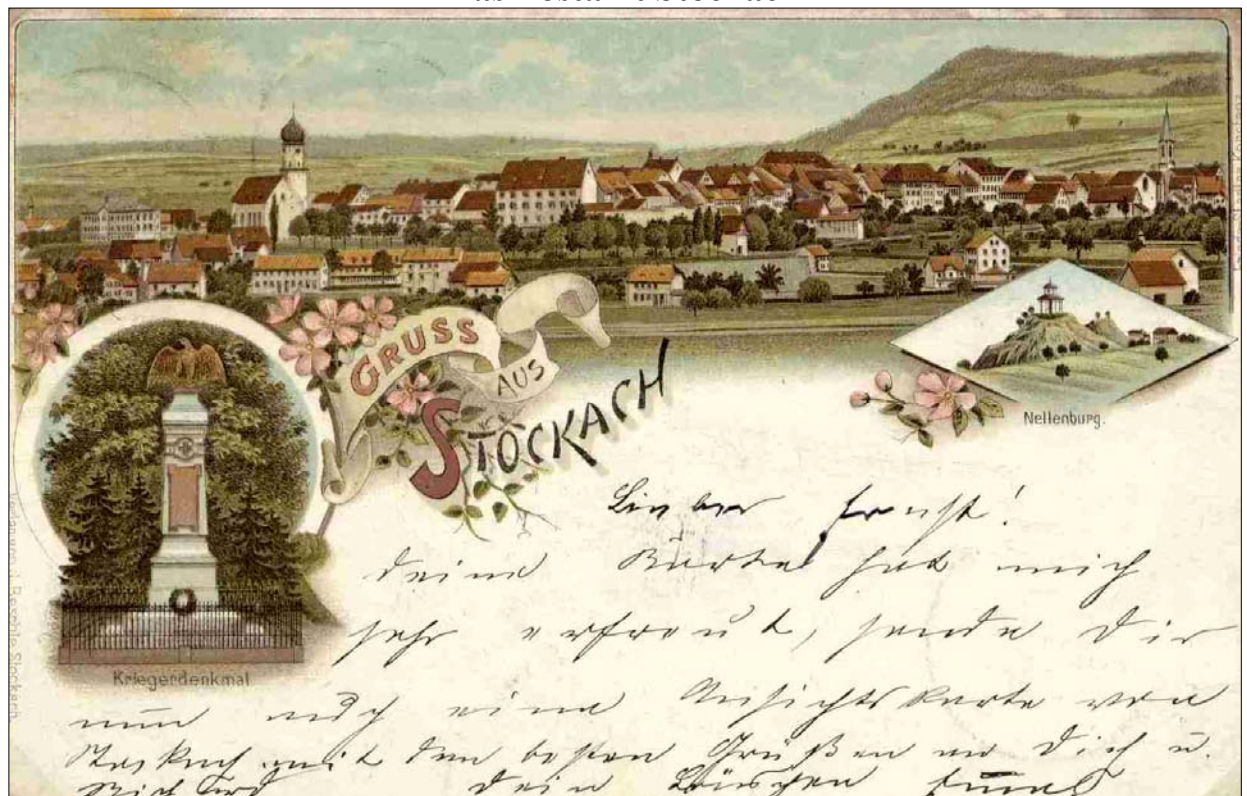 GRUSS
AUS
STOCKACH
Nellenburg.
Kriegerdenkmal
Lieber Ernst!
Deine Karte hat mich
sehr erfreut, sende Dir
nun auch eine Ansichtskarte von
Stockach mit den besten Grüßen an Dich u.
Dein